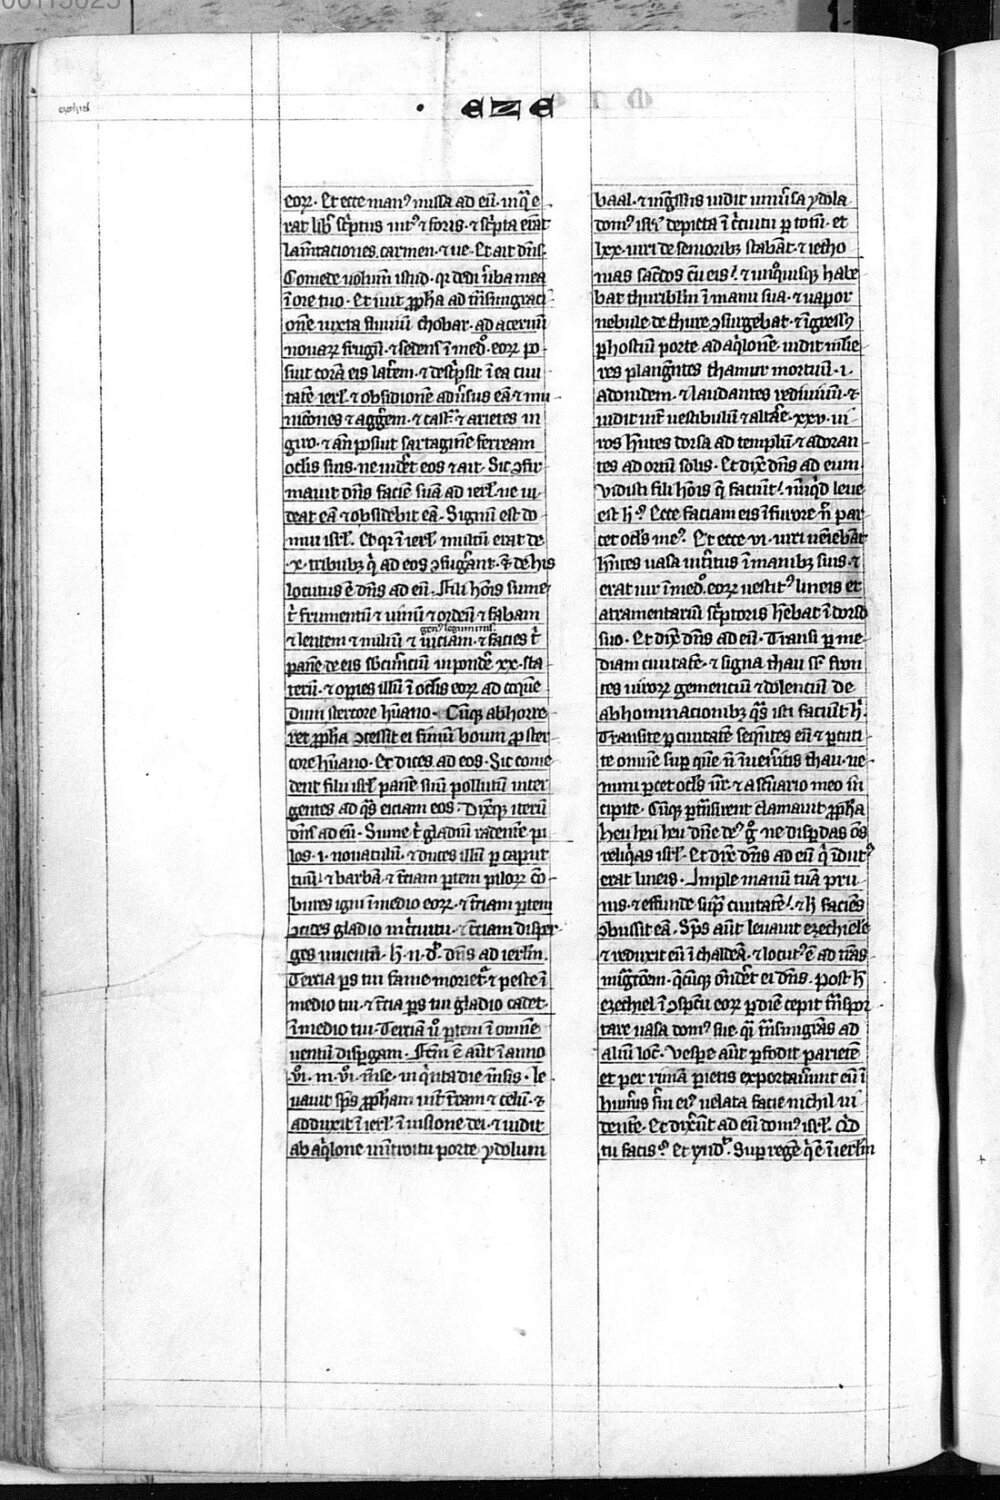 00115025
ezechiel
· EZE
eoꝝ · Et ecce manꝰ missa ad eū · in q̄ e-
rat lib̕ sc̕ptus intꝰ ⁊ foris · ⁊ sc̕pta erāt
lam̄taciones · carmen · ⁊ ue · Et ait dn̄s ·
Comede uolum̄ istud · qr dedi ūba mea
ī ore tuo · Et iuit ꝓph̄a ad tn̄smigraci-
onē iuxta fluuiū chobar · ad aceruū
nouaꝝ frugū · ⁊ sedens ī med̊ · eoꝝ po-
suit corā eis lat̄em · ⁊ desc̕psit ī ea ciui-
tatē ierl̄ · ⁊ obsidionē adu̕sus eā ⁊ mu-
nicōnes ⁊ agg̕em · ⁊ cast̕ ⁊ arietes in
giro · ⁊ an̄ posuit sartaginē ferream
oc̄lis suis · ne uid̕et eos ⁊ ait · Sic ꝯfir-
mauit dn̄s faciē suā ad ierl̄ · ne ui-
deat eā ⁊ obsidebit eā · Signū est do-
mui isrl̄ · Et qr ī ierl̄ multū erat de
·x· tribubꝫ q̇ ad eos ꝯfug̕ant · ⁊ de his
locutus ē dn̄s ad eū · Fili hōis sume
t̄ frumentū ⁊ uinū ⁊ ordeū ⁊ fabam
gen̕ leguminis
⁊ lentem ⁊ miliū ⁊ uiciam · ⁊ facies t̄
panē de eis sb̄cin̕iciū in pond̕e xx · sta-
terū · ⁊ opies illū ī oc̄lis eoꝝ ad coq̄ne-
dum stercore hūano · Cūqꝫ abhorre-
ret ꝓph̄a ꝯcessit ei fimū boum ꝓ ster-
core hūano · Et dices ad eos · Sic come-
dent filii isrl̄ panē suū pollutū inter
gentes ad q̄s eiciam eos · Dix̄qꝫ iterū
dn̄s ad eū · Sume t̄ gladiū radentē pi-
los · i · nouaculū · ⁊ duces illū ꝑ caput
tuū ⁊ barbā · ⁊ t̄ciam ꝑtem piloꝝ cō-
bures igni in medio eoꝝ · ⁊ t̄ciam ꝑtem
ꝯcides gladio in c̕cuitu · ⁊ t̄ciam disper-
ges in uentū · h̄ · n · d̄t · dn̄s ad ierl̄m ·
Tercia ꝑs tui fame moriet̕ ⁊ peste ī
medio tui · ⁊ t̄cia ꝑs tui gladio cadet ·
ī medio tui · Terciā ů ꝑtem ī omnē
uentū disꝑgam · Fcm̄ ē aūt ī anno
·vi̊ · in · vi̊ · m̄se · in q̇nta die m̄sis · le-
uauit sp̄s ꝓph̄am int̄ t̄ram ⁊ celū · ⁊
adduxit ī ierl̄ · ī uisione dei · ⁊ uidit
ab aq̇lone in introitu porte ydolum
baal · ⁊ ing̕ssus uidit uniu̕sa ydola
domꝰ isrl̄ depicta ī c̕cuitu ꝑ totū · et
lxx · uiri de senioribꝫ stabāt · ⁊ iecho-
nias sac̕dos cū eis · ⁊ unꝰquisqꝫ habe-
bat thuribl̄m ī manu sua · ⁊ uapor
nebule de thure ꝯsurgebat · ⁊ īgressꝰ
ꝑ hostiū porte ad aq̇lonē uidit mlīe-
res planḡntes thamur mortuū · i ·
adonidem · ⁊ laudantes rediuiuū · ⁊
uidit int̄ uestibulū ⁊ altāe · xxv · ui-
ros hn̄tes dorsa ad templū · ⁊ adoran-
tes ad ortū solis · Et dix̄ dn̄s ad eum
Vidisti fili hōis q̄ faciūt · nūq̇d leue
est h̄ · Ecce faciam eis ī furore n̄ par-
cet oc̄ls meꝰ · Et ecce vi · uiri uēiebāt
hn̄tes uasa int̕itus ī manibꝫ suis · ⁊
erat uir ī med̊ · eoꝝ uestitꝰ lineis et
atramentariū sc̕ptoris hēbat ī dorso
suo · Et dix̄ dn̄s ad eū · Transi ꝑ me-
diam ciuitatē · ⁊ signa thau sr̄ fron-
tes uiroꝝ gemenciū ⁊ dolenciū de
abhominacionibꝫ q̄s isti faciūt h̄ ·
Transite ꝑ ciuitatē seq̄ntes eū ⁊ ꝑcuti-
te omnē suꝑ quē n̄ īuen̕itis thau · ne-
mini ꝑcet oc̄ls ur̄ · ⁊ a sc̄uario meo in-
cipite · Cūqꝫ ꝑtn̄sirent clamauit ꝓph̄a
heu heu heu dn̄e deꝰ g̊ ne disꝑdas ōs
reliq̇as isrl̄ · Et dix̄ dn̄s ad eū q̇ īdutꝰ
erat lineis · Imple manū tuā pru-
nis · ⁊ effunde suꝑ ciuitatē · ⁊ h̄ faciēs
ꝯbussit eā · Sp̄s aūt leuauit ezechielē
⁊ reduxit eū ī chaldeā · ⁊ locutꝰ ē ad t̄ns-
mig̕coem · q̄cūqꝫ ōnd̕et ei dn̄s · post h̄
ezechiel ī ꝯspc̄u eoꝝ ꝑ diē cepit t̄nspor-
tare uasa domꝰ sue · q̇ t̄nsmig̕ns ad
aliū locū · Vespe aūt ꝑfodit parietē
et per rimā pietis exportau̕unt eū ī
hum̕is sūi eiꝰ uelata facie nichil ui-
dentē · Et dix̄unt ad eū domꝰ isrl̄ · Q̇d
tu facis · Et r̄nd̕ · Suꝑ regē q̇ ē ī ierl̄m